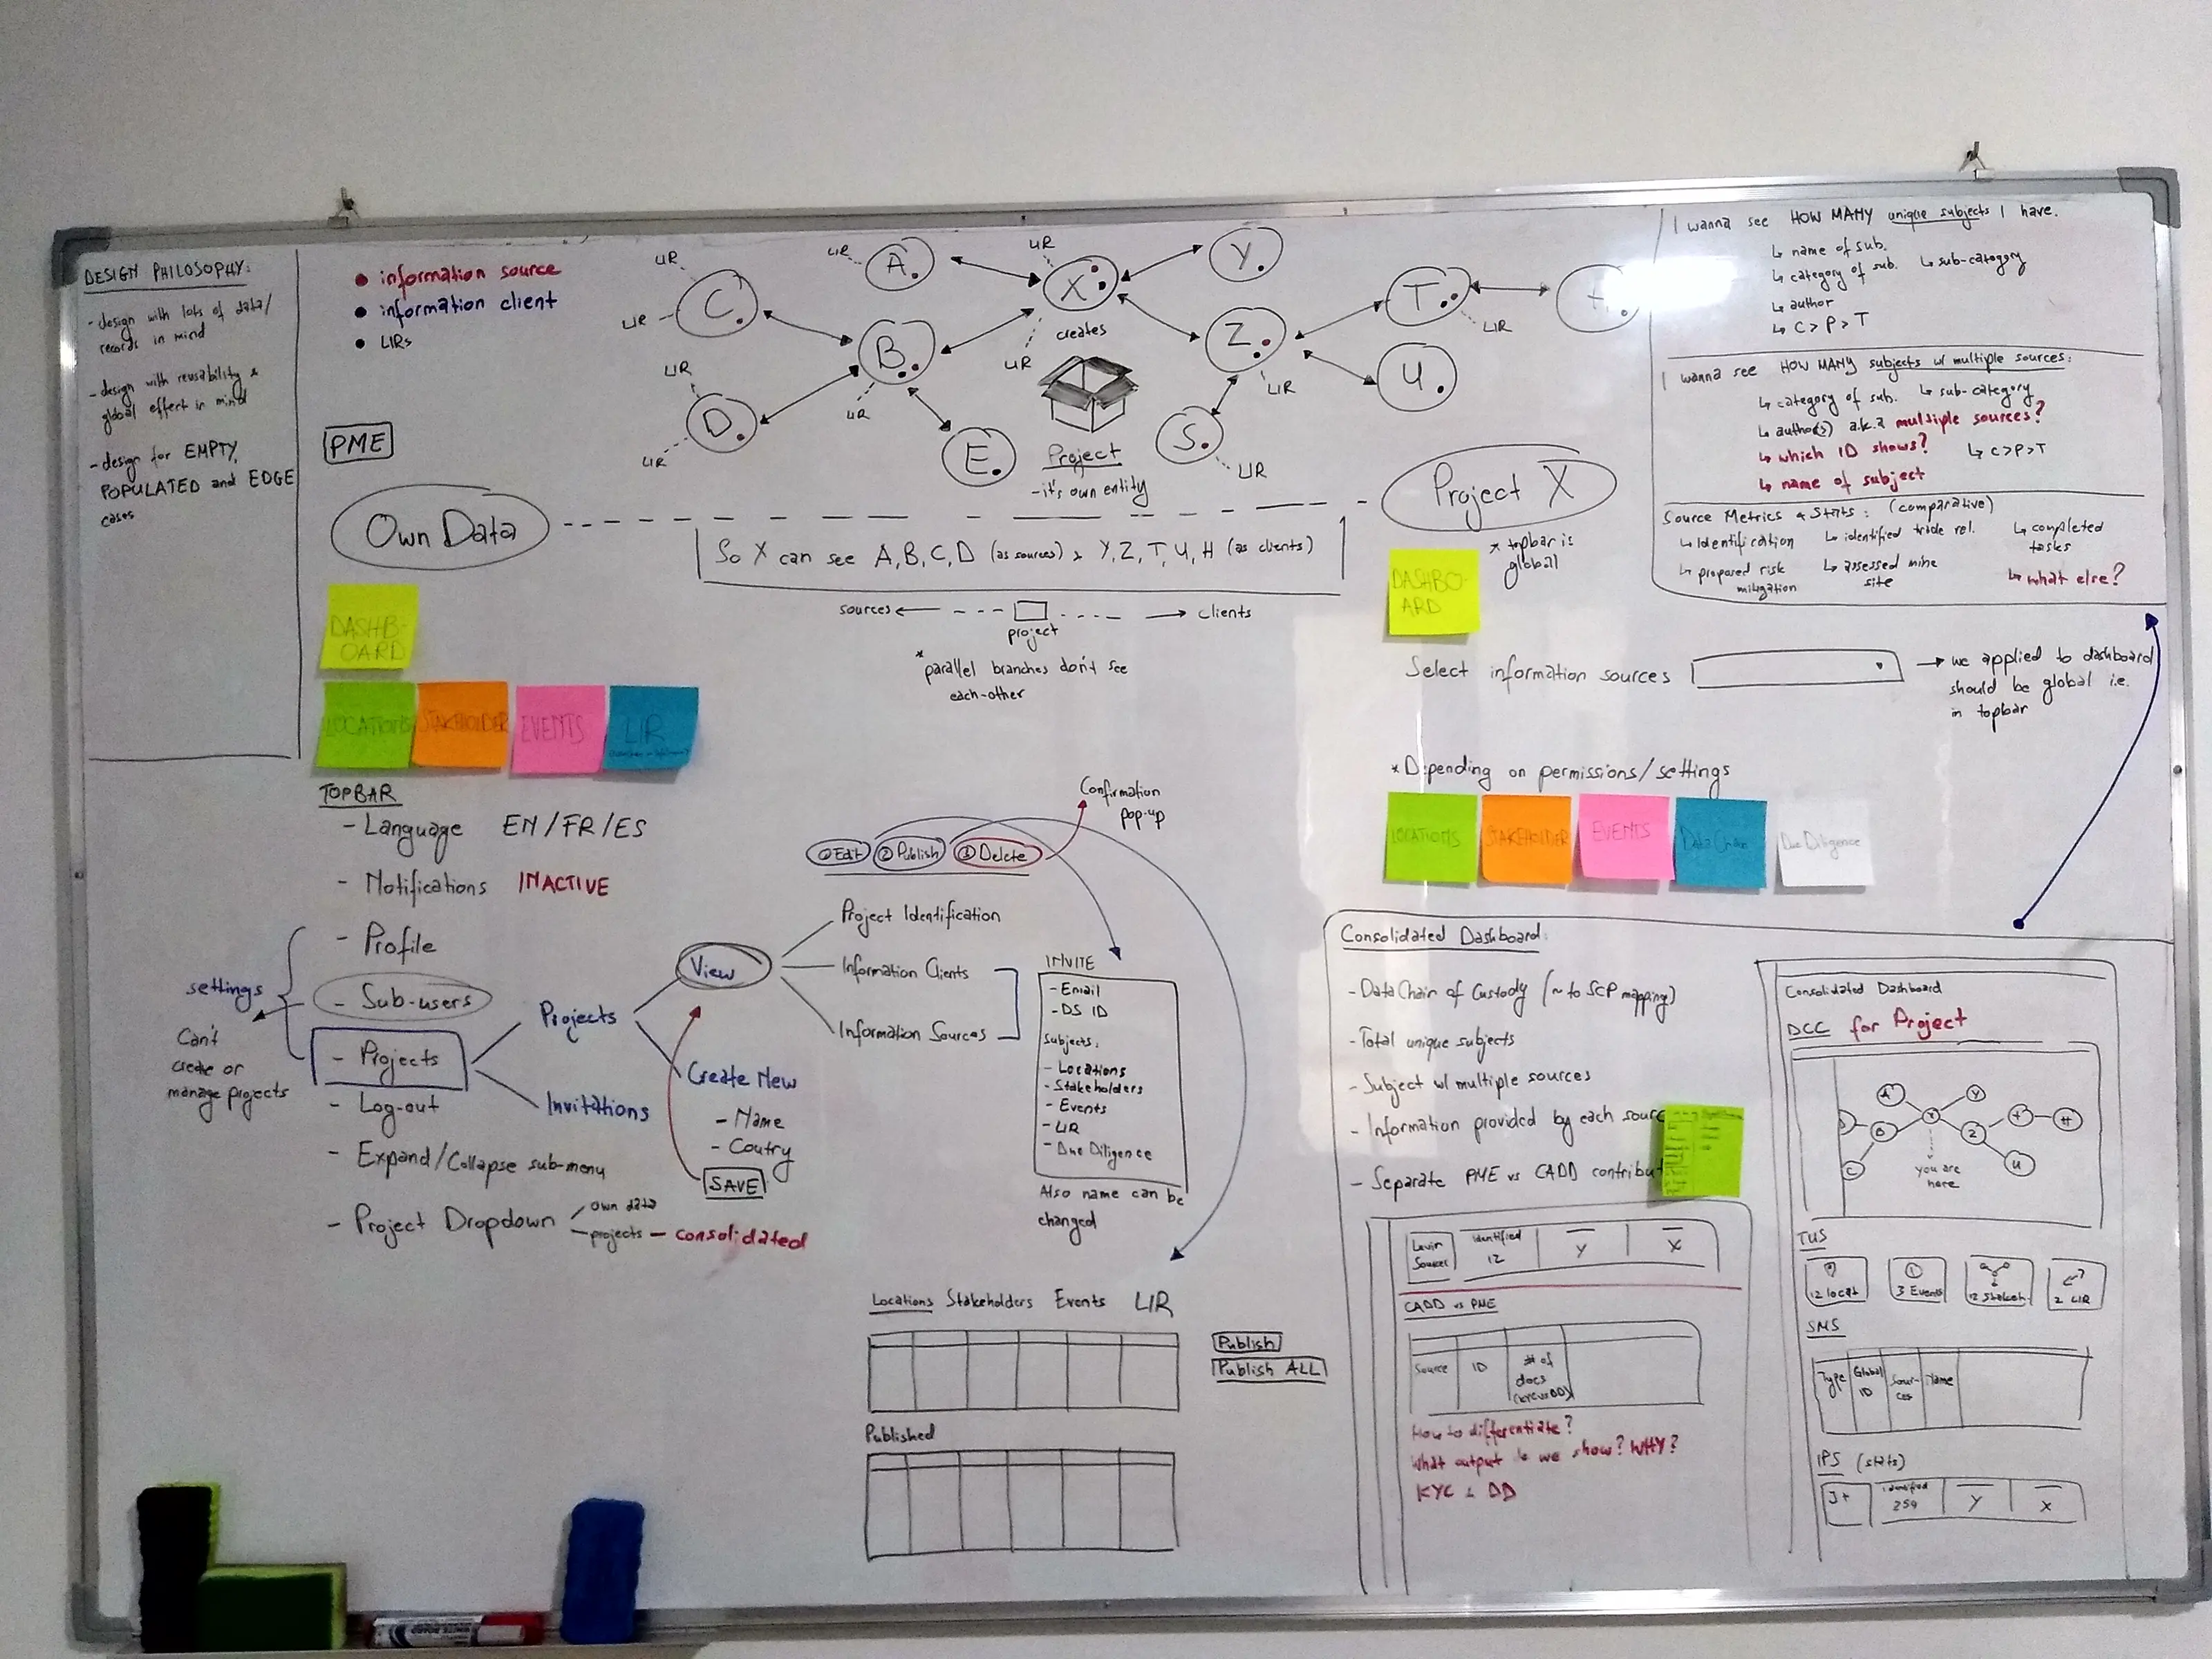 DESIGN PHILOSOPHY:
- design with lots of data/
records in mind
- design with reusability &
global effect in mind
- design for EMPTY,
POPULATED and EDGE
cases
• information source
• information client
• LIRs
PME
LIR
LIR
LIR
LIR
C
A
X
Y
creates
LIR
LIR
LIR
LIR
LIR
B
D
E
Z
T
H
U
S
LIR
LIR
LIR
Project
- it's own entity
Own Data
Project X
So X can see A, B, C, D (as sources) & Y, Z, T, U, H (as clients)
sources
project
clients
* parallel branches don't see
each-other
* topbar is
global
I wanna see HOW MANY unique subjects I have.
↳ name of sub.
↳ category of sub. ↳ sub-category
↳ author
↳ C > P > T
I wanna see HOW MANY subjects w/ multiple sources:
↳ category of sub. ↳ sub-category
↳ author(s) a.k.a multiple sources?
↳ which ID shows? ↳ C > P > T
↳ name of subject
Source Metrics & Stats: (comparative)
↳ Identification ↳ identified trade rel. ↳ completed
tasks
↳ proposed risk
mitigation
↳ assessed mine
site
↳ what else?
DASHB-
OARD
LOCATIONS
STAKEHOLDER
EVENTS
LIR
DASHBO-
ARD
Select information sources
→ we applied to dashboard
should be global i.e.
in topbar
*Depending on permissions/settings
LOCATIONS
STAKEHOLDER
EVENTS
Data Chain
Due Diligence
TOPBAR
- Language EN/FR/ES
- Notifications INACTIVE
- Profile
- Sub-users
- Projects
- Log-out
- Expand/Collapse sub-menu
- Project Dropdown
own data
projects — consolidated
settings
Can't
create or
manage projects
Projects
Invitations
View
Create New
- Name
- Coutry
SAVE
① Edit
② Publish
③ Delete
Confirmation
pop-up
Project Identification
Information Clients
Information Sources
INVITE
- Email
- DS ID
Subjects:
- Locations
- Stakeholders
- Events
- LIR
- Due Diligence
Also name can be
changed
Locations Stakeholders Events LIR
Publish
Publish ALL
Published
Consolidated Dashboard
- Data Chain of Custody (~ to SCP mapping)
- Total unique subjects
- Subject w/ multiple sources
- Information provided by each sourc
- Separate PME vs CADD contribut
Levin
Sources
identified
12
Y
X
CADD vs PME
Source
ID
# of
docs
How to differentiate?
What output do we show? WHY?
KYC & DD
Consolidated Dashboard
DCC for Project
A
X
Y
B
C
Z
T
H
U
you are
here
TUS
12 locat
3 Events
12 Stakeh.
2 LIR
SMS
Type
Global
ID
Sour-
ces
Name
IPS (stats)
J+
identified
259
Y
X